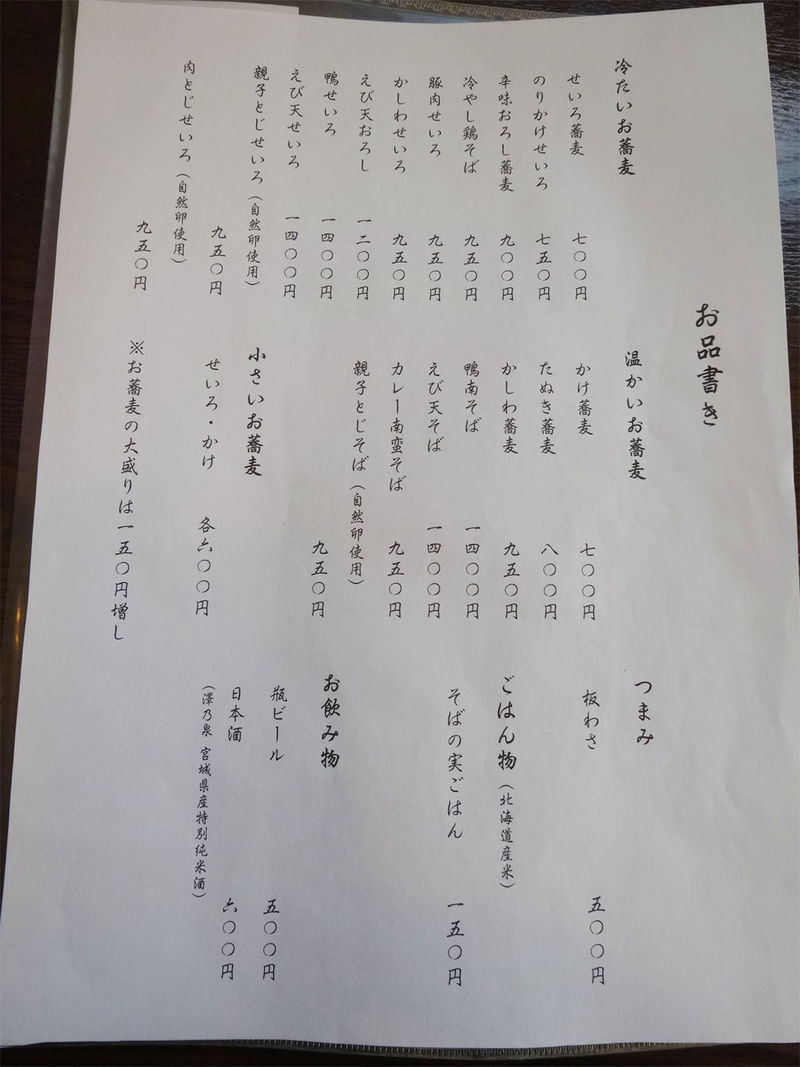 お品書き
冷たいお蕎麦
せいろ蕎麦 七〇〇円
のりかけせいろ 七五〇円
辛味おろし蕎麦 九〇〇円
冷やし鶏そば 九五〇円
豚肉せいろ 九五〇円
かしわせいろ 九五〇円
えび天おろし 一二〇〇円
鴨せいろ 一四〇〇円
えび天せいろ 一四〇〇円
親子とじせいろ（自然卵使用）
九五〇円
肉とじせいろ（自然卵使用）
九五〇円
温かいお蕎麦
かけ蕎麦 七〇〇円
たぬき蕎麦 八〇〇円
かしわ蕎麦 九五〇円
鴨南そば 一四〇〇円
えび天そば 一四〇〇円
カレー南蛮そば 九五〇円
親子とじそば（自然卵使用）
九五〇円
小さいお蕎麦
せいろ・かけ 各六〇〇円
※お蕎麦の大盛りは一五〇円増し
つまみ
板わさ 五〇〇円
ごはん物（北海道産米）
そばの実ごはん 一五〇円
お飲み物
瓶ビール 五〇〇円
日本酒 六〇〇円
（澤乃泉 宮城県産特別純米酒）